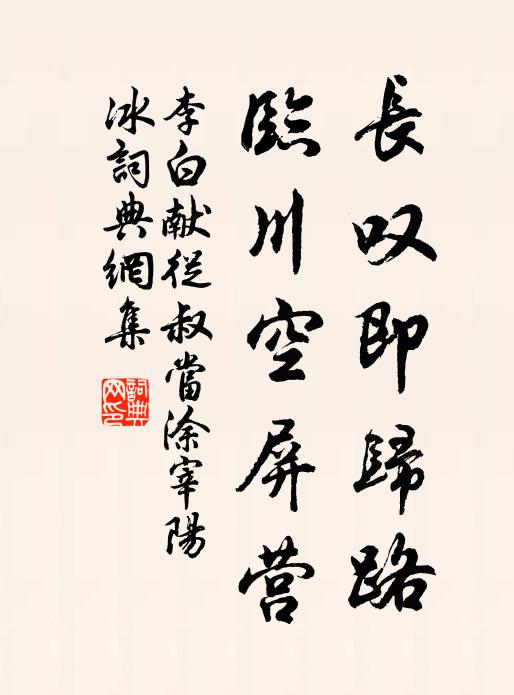 長叹即歸路
臨川空屏营
李白献從叔當涂宰陽
冰詞典網集
詞典
网印